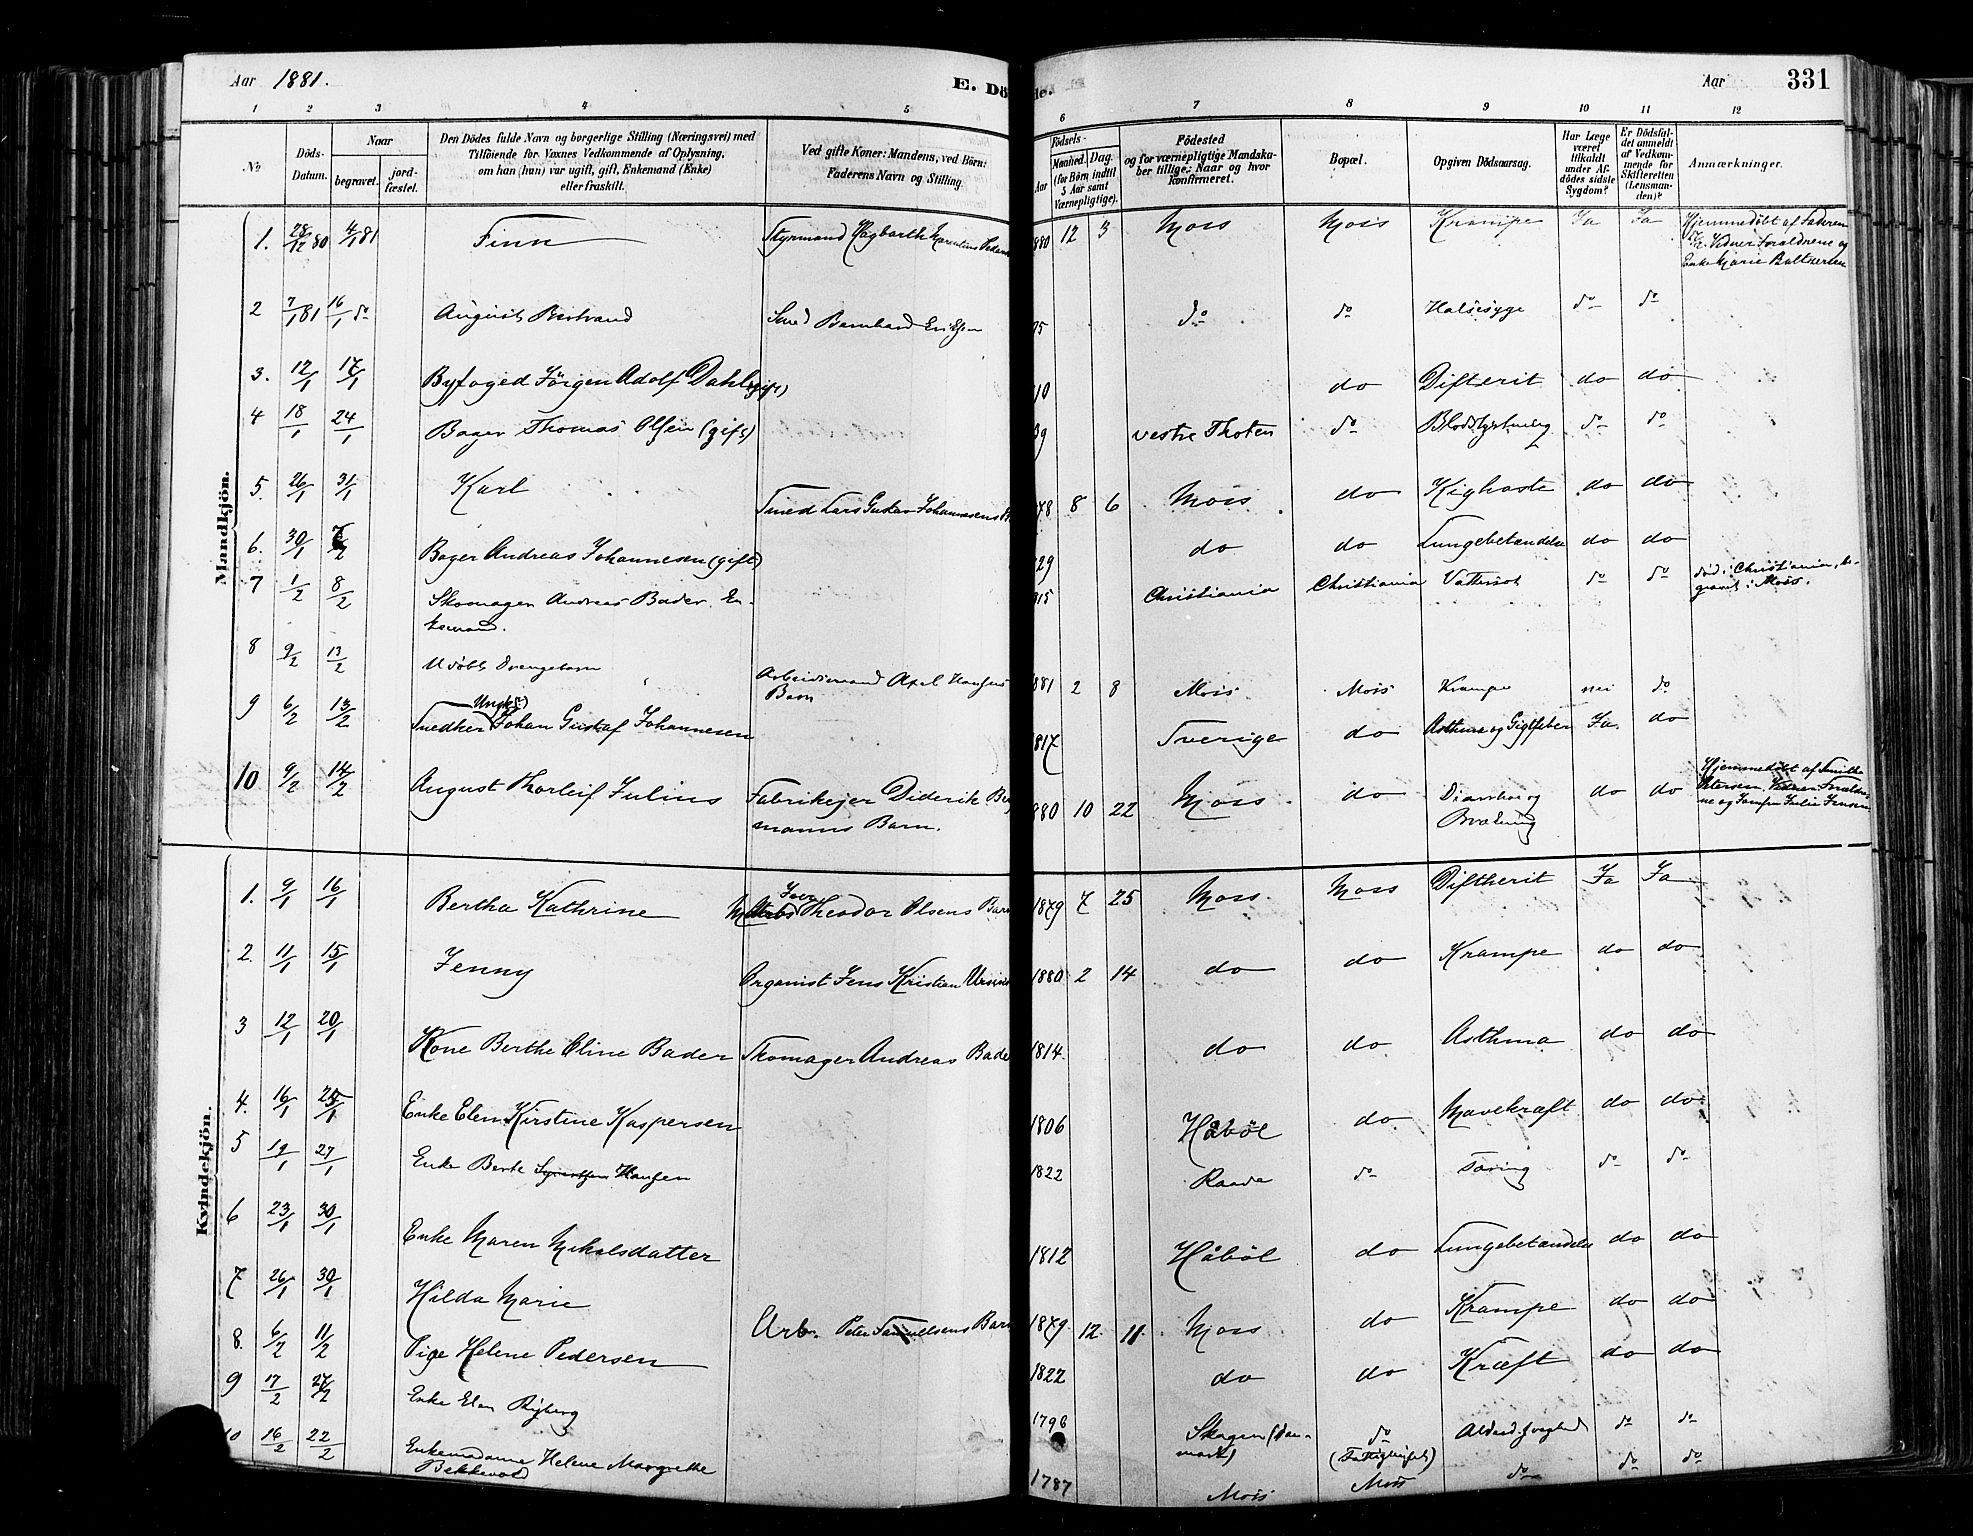 Aar 1881.
E. Dö
de.
Aar
331
1 2 3 4 5 6 7 8 9 10 11 12
No
Döds-Datum.
Naar
begravet.
jord-fæstet.
Den Dödes fulde Navn og borgerlige Stilling (Næringsvei) med
Tilföiende for Voxnes Vedkommende af Oplysning,
om han (hun) var ugift, gift, Enkemand (Enke)
eller fraskilt.
Ved gifte Koner: Mandens, ved Börn:
Faderens Navn og Stilling.
Födsels-
Aar
Maaned. Dag.
(for Börn indtil
5 Aar samt
Værnepligtige).
Födested
og for værnepligtige Mandska-
ber tillige: Naar og hvor
konfirmeret.
Bopæl.
Opgiven Dödsaarsag.
Har Læge
været
tilkaldt
under Af-
dödes sidste
Sygdom?
Er Dödsfal-
det anmeldt
af Vedkom-
mende for
Skifteretten
(Lensman-
den)?
Anmærkninger.
Mandkjön.
1. 28/12 80 4/1 81 Finn Styrmand Hagbarth 880 12 3 Moss Moss Krampe Ja Ja Hjemmedøbt af Faderen
Vidner Forældrene og
Enke Marie Baltzersen
2 7/1 81 16/1 do August Bertrand Smed Bernhard Eriksen 75 do do Halssyge do do
3. 12/1 17/1 Byfoged Jörgen Adolf Dahl (gift) 10 do Difterit do do
4 18/1 24/1 Bager Thomas Olsen (gift) 39 vestre Thoten do Blodstyrtning do do
5. 26/1 31/1 Karl Smed Lars Gustav Johannesens 878 8 6 Moss do Kighoste do do
6. 30/1 Bager Andreas Johannesen (gift) 829 do do Lungebetændelse do do
7 1/2 8/2 Skomager Andreas Bader. En-
kemand. 815 Christiania Christiania Vattersot do do død i Christiania, be-
gravet i Moss.
8 9/2 13/2 Udøbt Drengebarn Arbeidsmand Axel Hansens
Barn 881 2 8 Moss Moss Krampe nei do
9 6/2 13/2 Snedker Johan Gustaf Johannesen 1817 Sverige do Asthma og Gigtfeber Ja. do
10 9/2 14/2 August Thorleif Julius Fabrikejer Diderik Berg
manns Barn. 880 10 22 Moss do Diarrhoe og
Brækning do do Hjemmedøbt af
Petersen, Vidner Forældre-
ne og Jomfru Julie Jensen
Kvindekjön.
1. 9/1 16/1 Bertha Kathrine Theodor Olsens Barn 1879 7 25 Moss Moss Diftherit Ja Ja
2. 11/1 15/1 Jenny Organist Jens Kristian 1880 2 14 do do Krampe do do
3 12/1 20/1 Kone Berthe Oline Bader Skomager Andreas Bade 1814. do do Asthma do do
4. 16/1 25/1 Enke Elen Kirstine Kaspersen 1806 Håböl do Mavekræft do do
5 19/1 27/1 Enke Berte Hansen 1822 Raade do Tæring do do
6 23/1 30/1 Enke Maren Nikolsdatter 1812 Håböl do Lungebetændelse do do
7 26/1 30/1 Hilda Marie Arb. Peter Samuelsens Barn 1879 12. 11. Moss do Krampe do do
8. 6/2 11/2 Pige Helene Pedersen 1822 do do Kræft do do
9 17/2 27/2 Enke Elen Ryberg 1796 Skagen (Dan-
mark) do
(Fattighuset) Alderdomsvaghed do do
10 16/2 22/2 Enkemadame Helene Margrethe
Bekkevold 1787 Moss Moss do do do